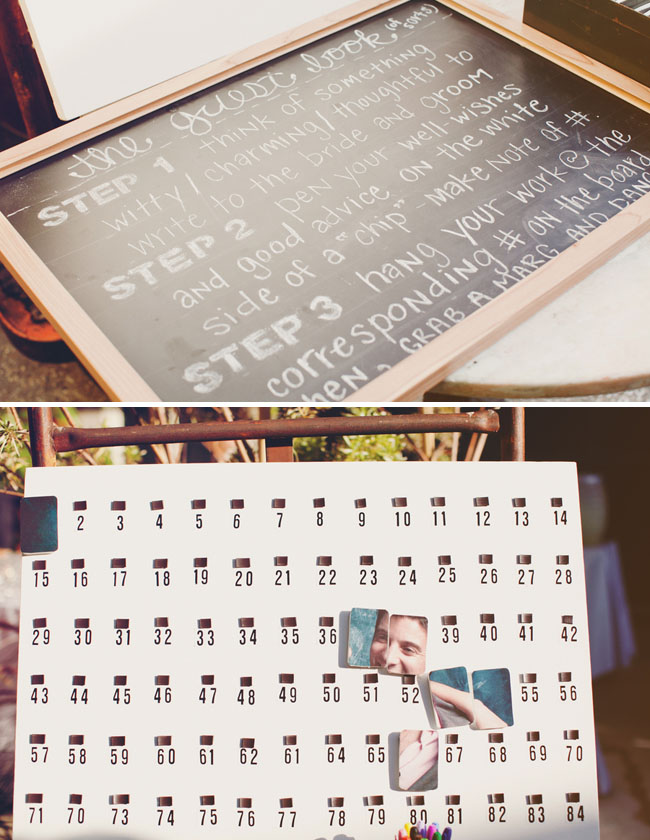 the guest book (of sorts)
STEP 1 think of something
witty/charming/thoughtful to
write to the bride and groom
STEP 2 pen your well-wishes
and good advice on the white
side of a "chip" - make note of #.
STEP 3 hang your work @ the
corresponding # on the board
GRAB A MARG AND
2 3 4 5 6 7 8 9 10 11 12 13 14
15 16 17 18 19 20 21 22 23 24 25 26 27 28
29 30 31 32 33 34 35 36 39 40 41 42
43 44 45 46 47 48 49 50 51 52 55 56
57 58 59 60 61 62 61 64 65 67 68 69 70
71 70 73 74 75 76 77 78 79 80 81 82 83 84